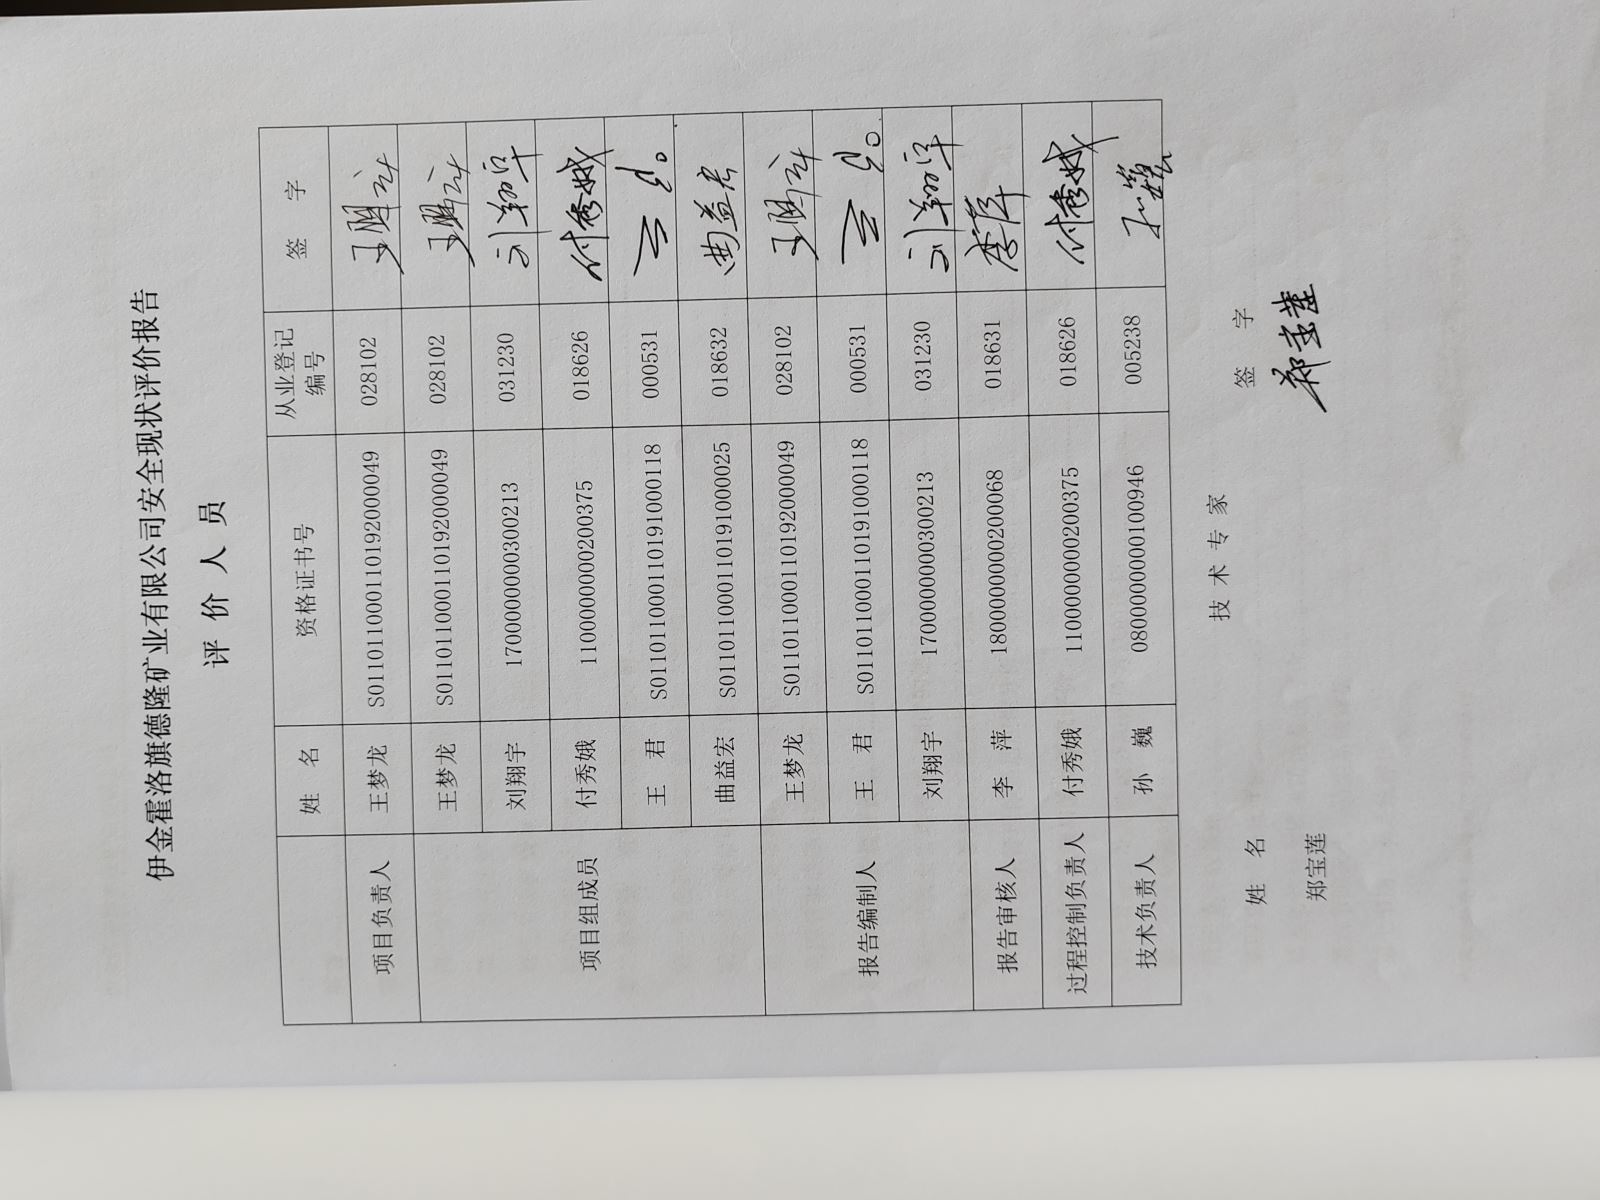 伊金霍洛旗德隆矿业有限公司安全现状评价报告
评价人员
姓名 资格证书号 从业登记编号 签字
项目负责人 王梦龙 S011011000110192000049 028102
项目组成员 王梦龙 S011011000110192000049 028102
刘翔宇 1700000000300213 031230 刘翔宇
付秀娥 1100000000200375 018626 付秀娥
王君 S011011000110191000118 000531
曲益宏 S011011000110191000025 018632 曲益宏
报告编制人 王梦龙 S011011000110192000049 028102
王君 S011011000110191000118 000531
刘翔宇 1700000000300213 031230 刘翔宇
报告审核人 李萍 1800000000200068 018631 李萍
过程控制负责人 付秀娥 1100000000200375 018626 付秀娥
技术负责人 孙巍 0800000000100946 005238
技术专家
姓名 签字
郑宝莲 郑宝莲